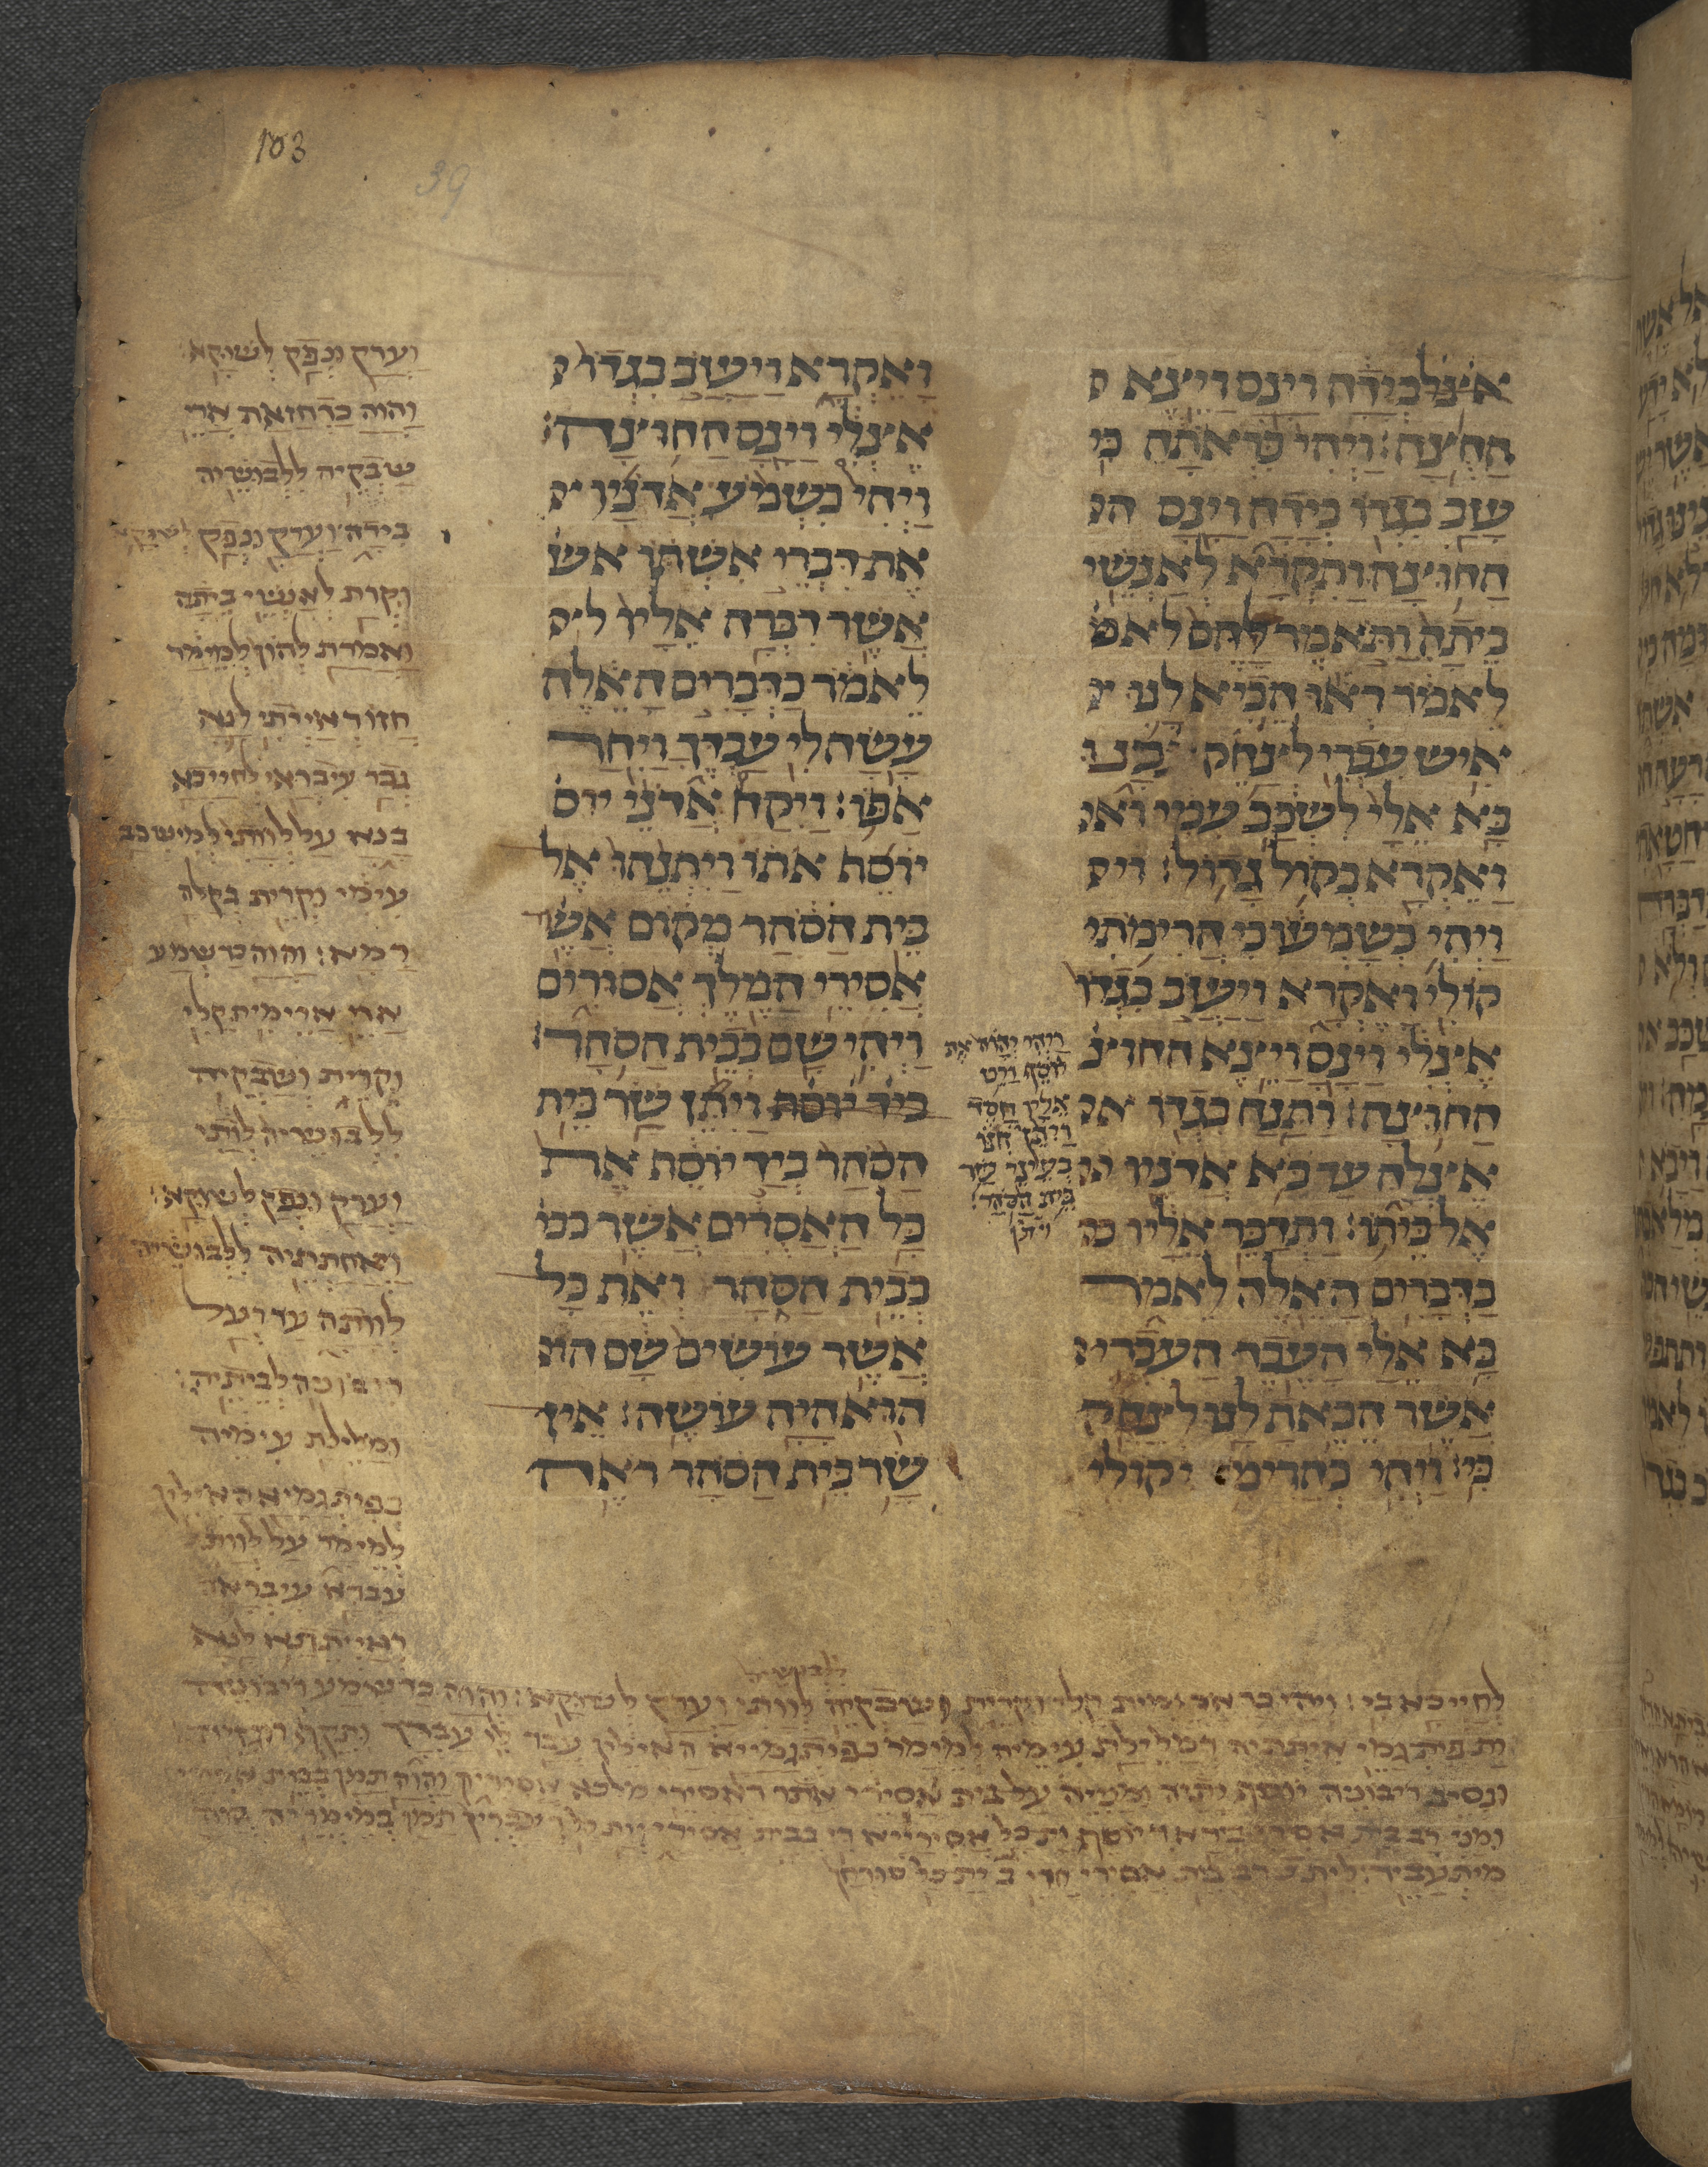 אצלבידה וינס ויצא
החוצה׃ ויהי כראתה כי
עזב בגדו בידה וינס הח
החוצה ותקרא לאנשי
ביתה ותאמר להם לאמ
לאמר ראו הביא לנו
איש עברי לצחק בנו
בא אלי לשכב עמי ואק
ואקרא בקול גדול׃ וי
ויהי כשמעו כי הרימתי
קולי ואקרא ויעזב בגדו
אצלי וינס ויצא החוצ
החוצה׃ ותנח בגדו
אצלה עד בא אדניו
אל ביתו׃ ותדבר אליו כד
כדברים האלה לאמר
בא אלי העבד העברי
אשר הבאת לנו לצחק
בי׃ ויהי כהרימי קולי
ויהי יהוה את
יוסף ויט
אליו חסד
ויתן חנו
בעיני שר
בית הסהר
ויתן
ואקרא ויעזב בגדו
אצלי וינס החוצה׃
ויהי כשמע אדניו
את דברי אשתו אש
אשר דברה אליו ל
לאמר כדברים האלה
עשה לי עבדך ויחר
אפו׃ ויקח אדני יוס
יוסף אתו ויתנהו אל
בית הסהר מקום אשר
אסירי המלך אסורים
ויהי שם בבית הסהר׃
ביד יוסף ויתן שר בית
הסהר ביד יוסף את
כל האסרים אשר בב
בבית הסהר ואת כל
אשר עושים שם הו
הוא היה עושה׃ אין
שר בית הסהר ראה
103
39
וערק ונפק לשוקא׃
והוה כד חזאת ארי
שבקיה ללבושיה
בידה וערק ונפק לשוקא
וקרת לאנשי ביתה
ואמרת להון למימר
חזו דאייתי לנא
גבר עיבראי לחייכא
בנא על לוותי למישכב
עימי וקרית בקלא
רמא׃ והוה כד שמע
ארי ארימית קלי
וקרית ושבקיה
ללבושיה לותי
וערק ונפק לשוקא׃
ואחתתיה ללבושיה
לוותה עד דעל
ריבונה לביתיה׃
ומלילת עימיה
כפיתגמיא האילין
למימר על לוותי
עבדא עיבראה
דאייתיתא לנא
ללבושיה
לחייכא בי׃ והוה כד ארימית קלי וקרית ושבקיה לוותי וערק לשוקא׃ והוה כד שמע ריבוניה
ית פיתגמי איתתיה דמלילת עימיה למימר כפיתגמייא האילין עבד לי עבדך ותקף רוגזיה
ונסיב ריבוניה יוסף יתיה ומניה על בית אסירי אתר דאסירי מלכא אסירין והוה תמן בבית אסירי
ומני רב בית אסירי ביד יוסף ית כל אסירייא די בבית אסירי וית כל דעבדין תמן במימריה הוה
מיתעביד׃ לית רב בית אסירי חזי ית כל סורחן